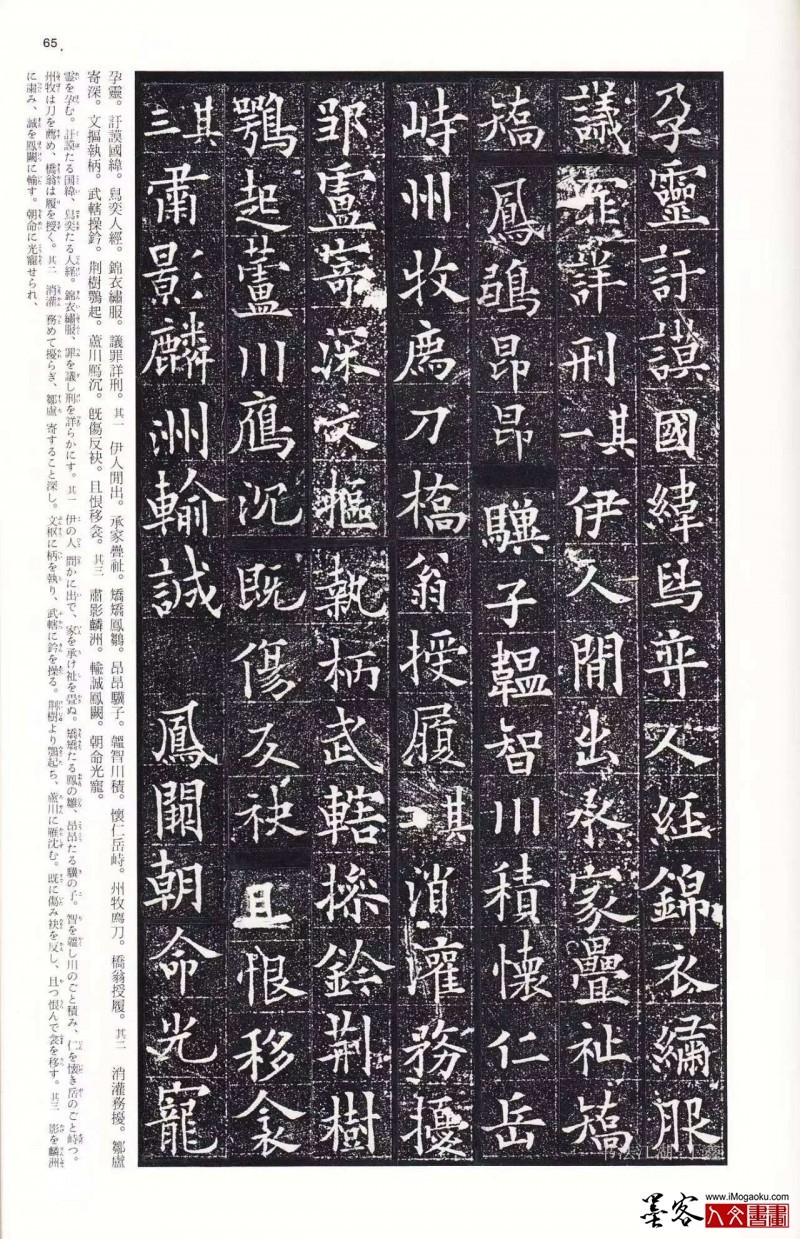 65
孕靈訏謨國緯舄弈人經錦衣繡服
議罪詳刑其一伊人閒出承家疊祉矯
矯鳳鶵昂昂驥子韞智川積懷仁岳
峙州牧薦刀橋翁授履其二消灌務擾
鄒盧寄深文樞執柄武轄操鈐荊樹
鶚起蘆川鴈沉既傷反袂且恨移衾
其三肅影麟洲輸誠鳳闕朝命光寵
孕靈。訏謨國緯。舄奕人經。錦衣繡服。議罪詳刑。其一 伊人閒出。承家疊祉。矯矯鳳鶵。昂昂驥子。韞智川積。懷仁岳峙。州牧薦刀。橋翁授履。其二 消灌務擾。鄒盧
寄深。文樞執柄。武轄操鈐。荊樹鶚起。蘆川鴈沉。既傷反袂。且恨移衾。其三 肅影麟洲。輸誠鳳闕。朝命光寵。
靈を孕む。訏謨たる国緯、舄奕たる人経。錦衣繡服、罪を議し刑を詳らかにす。其一 伊の人 閒かに出で、家を承け祉を畳ぬ。矯矯たる鳳の雛、昂昂たる驥の子。智を韞し川のごと積み、仁を懐き岳のごと峙つ。
州牧は刀を薦め、橋翁は履を授く。其二 消灌 務めて擾らぎ、鄒盧 寄すること深し。文枢に柄を執り、武轄に鈐を操る。荊樹より鶚起ち、蘆川に雁沈む。既に傷み袂を反し、且つ恨んで衾を移す。其三 影を麟洲
に粛み、誠を鳳闕に輸す。朝命に光寵せられ、
墨客
www.iMogaoku.com
人文書畫